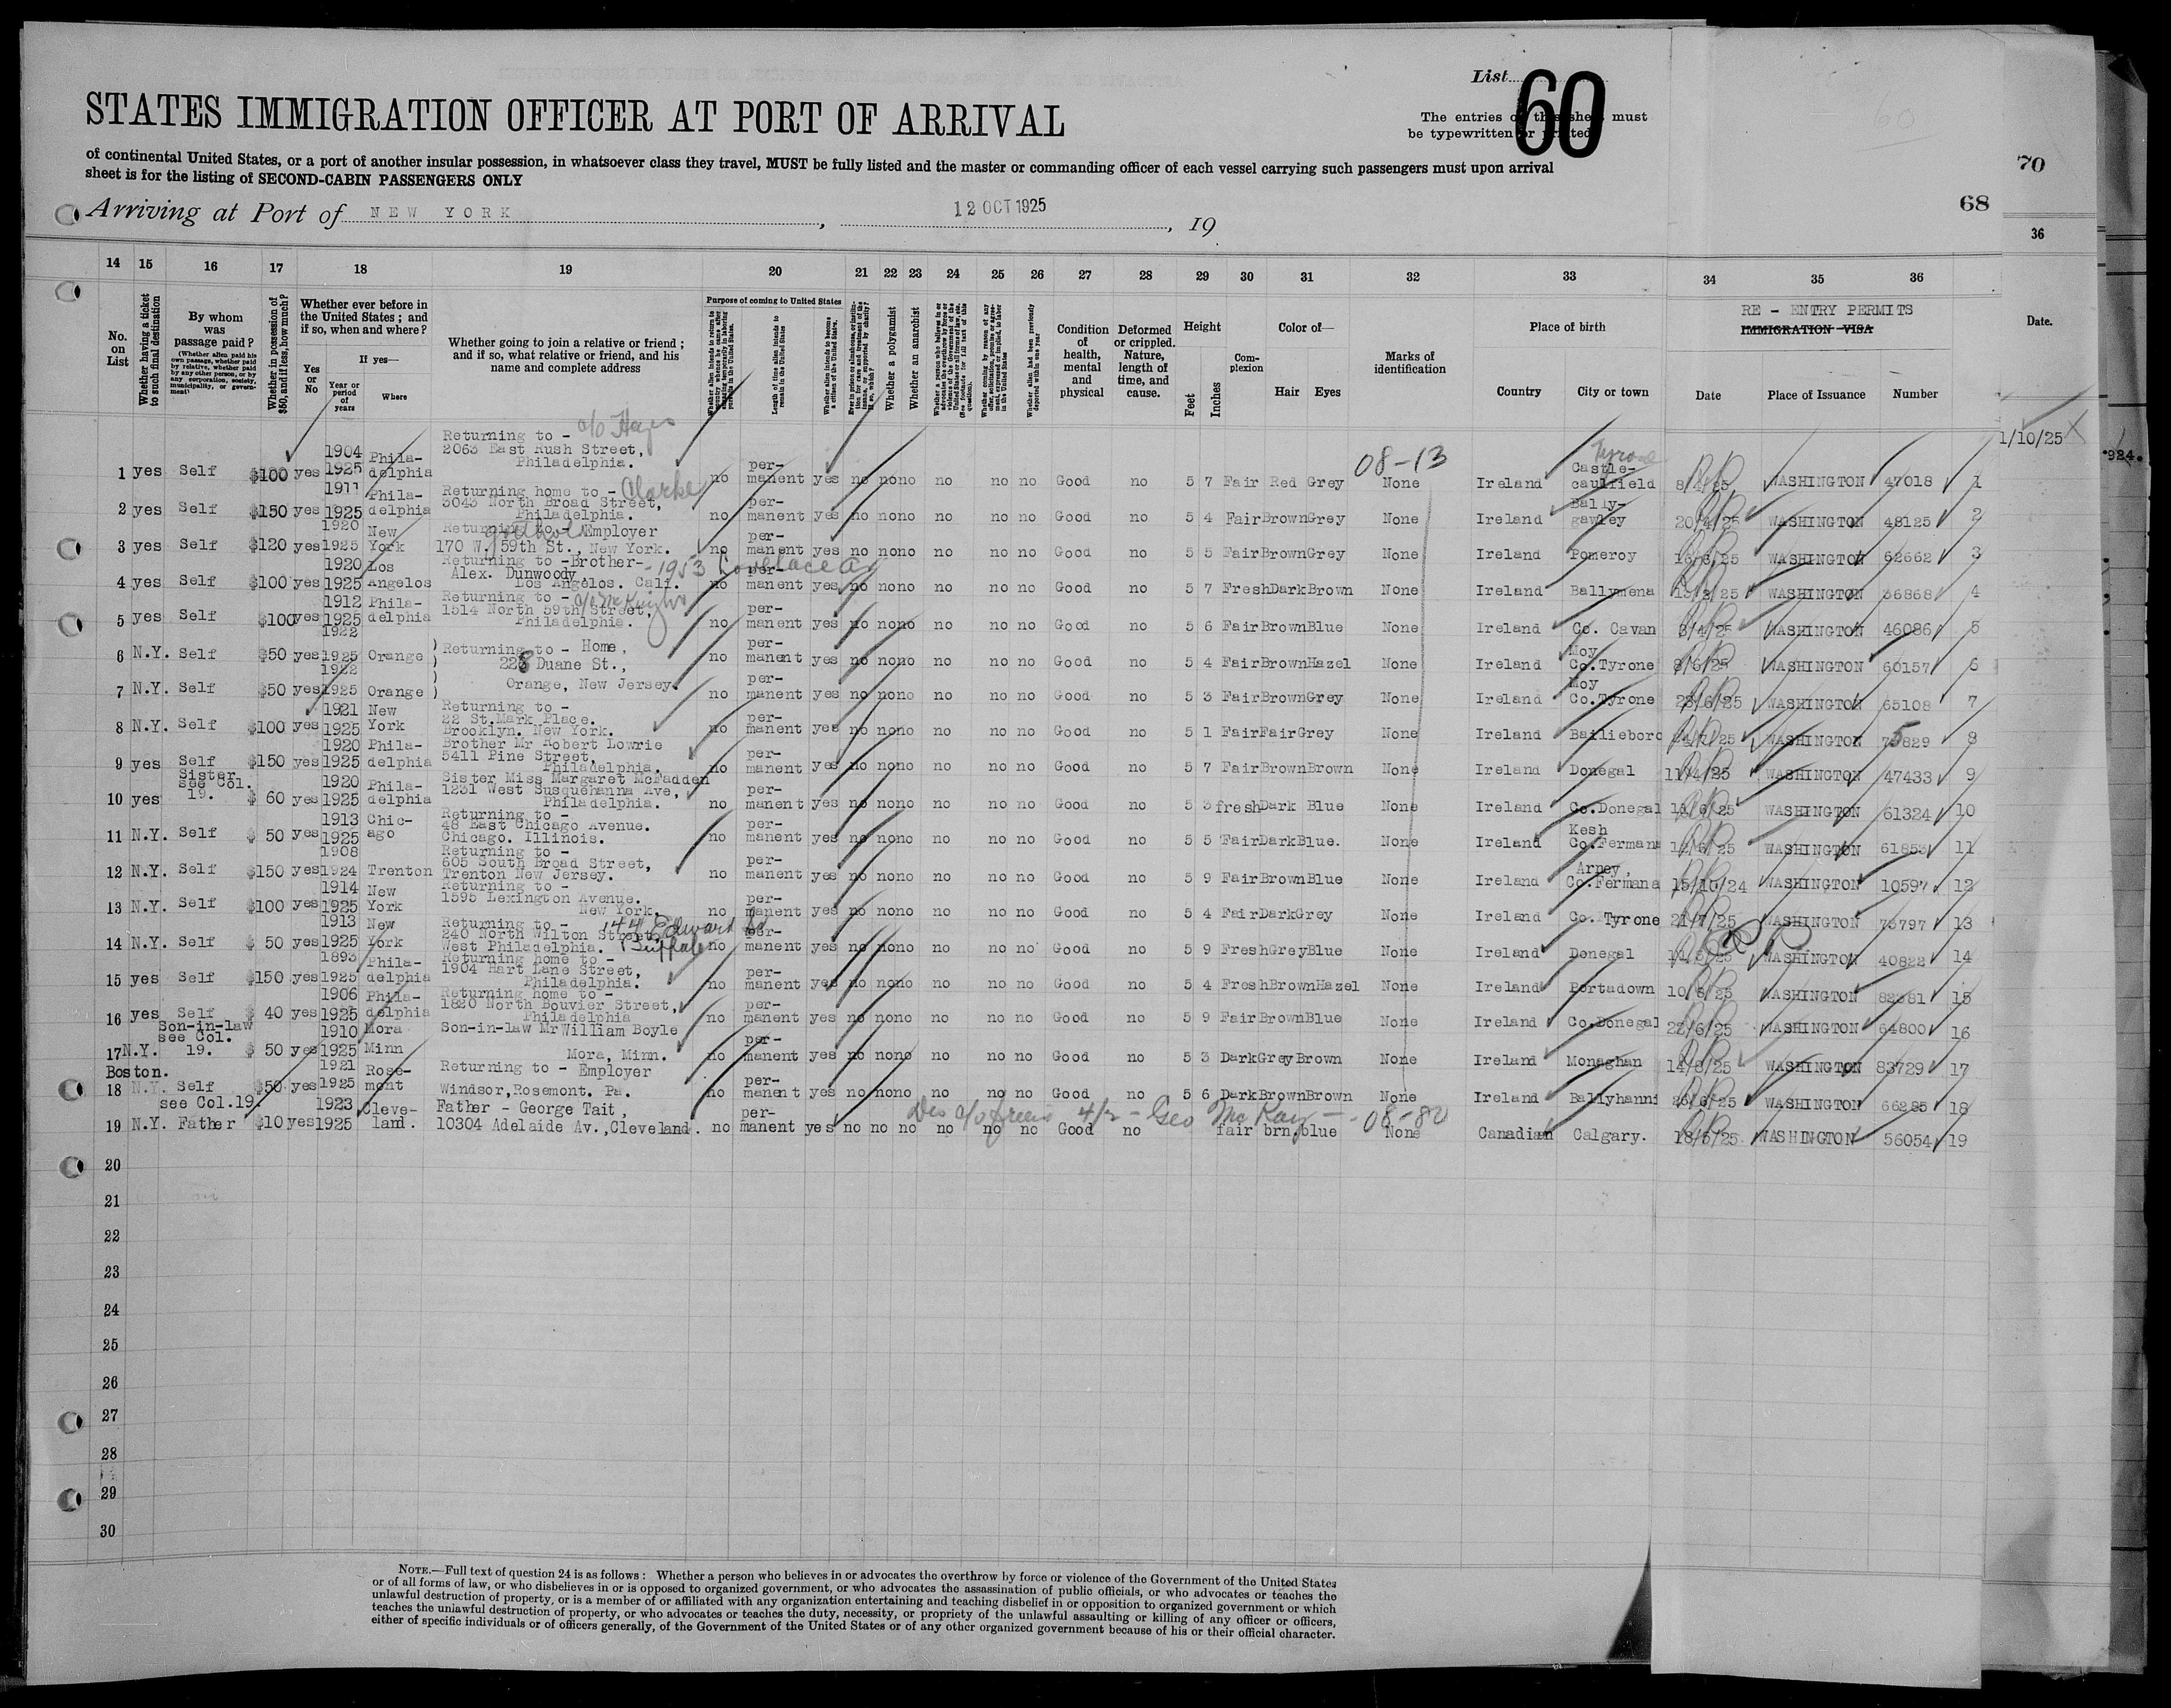 List
60
STATES IMMIGRATION OFFICER AT PORT OF ARRIVAL
The entries on this sheet must
be typewritten or printed
of continental United States, or a port of another insular possession, in whatsoever class they travel, MUST be fully listed and the master or commanding officer of each vessel carrying such passengers must upon arrival
sheet is for the listing of SECOND-CABIN PASSENGERS ONLY
70
68
36
Arriving at Port of NEW YORK, 12 OCT 1925, 19
14 15 16 17 18 19 20 21 22 23 24 25 26 27 28 29 30 31 32 33 34 35 36
No. on List
Whether having a ticket to such final destination
By whom was passage paid?
(Whether alien paid his own passage, whether paid by relative, whether paid by any other person, or by any corporation, society, municipality, or government)
Whether in possession of $50, and if less, how much?
Whether ever before in the United States; and if so, when and where?
Yes or No
If yes—
Year or period of years
Where
Whether going to join a relative or friend; and if so, what relative or friend, and his name and complete address
Purpose of coming to United States
Length of time alien intends to remain in the United States
Whether alien intends to become a citizen of the United States
Whether a polygamist
Whether an anarchist
Condition of health, mental and physical
Deformed or crippled. Nature, length of time, and cause.
Height
Feet
Inches
Complexion
Color of—
Hair Eyes
Marks of identification
Place of birth
Country
City or town
RE - ENTRY PERMITS
IMMIGRATION VISA
Date
Place of Issuance
Number
Date.
1/10/25
924
08-13
1 yes Self $100 yes 1904 1925 Phila-delphia Returning to - c/o Hayes 2063 East Rush Street, Philadelphia. no per-manent yes no no no no no no Good no 5 7 Fair Red Grey None Ireland Castle-caulfield Tyrone 8/4/25 WASHINGTON 47018 1
2 yes Self $150 yes 1911 1925 Phila-delphia Returning home to - Clarke 3043 North Broad Street, Philadelphia. no per-manent yes no no no no no no Good no 5 4 Fair Brown Grey None Ireland Bally-gawley 20/4/25 WASHINGTON 48125 2
3 yes Self $120 yes 1920 1925 New York Returning to - Employer 170 W. 59th St., New York. no per-manent yes no no no no no no Good no 5 5 Fair Brown Grey None Ireland Pomeroy 16/6/25 WASHINGTON 62662 3
4 yes Self $100 yes 1920 1925 Los Angelos Returning to -Brother- Alex. Dunwoody, 1953 Lovelace Av Los Angelos. Cali. no per-manent yes no no no no no no Good no 5 7 Fresh Dark Brown None Ireland Ballymena WASHINGTON 36868 4
5 yes Self $100 yes 1912 1925 Phila-delphia Returning to - 1514 North 59th Street, Philadelphia. no per-manent yes no no no no no no Good no 5 6 Fair Brown Blue None Ireland Co. Cavan 3/4/25 WASHINGTON 46086 5
6 N.Y. Self $50 yes 1922 1925 Orange Returning to - Home, 228 Duane St., no per-manent yes no no no no no no Good no 5 4 Fair Brown Hazel None Ireland Moy Co.Tyrone 8/6/25 WASHINGTON 60157 6
7 N.Y. Self $50 yes 1922 1925 Orange Orange, New Jersey. no per-manent yes no no no no no no Good no 5 3 Fair Brown Grey None Ireland Moy Co.Tyrone 23/6/25 WASHINGTON 65108 7
8 N.Y. Self $100 yes 1921 1925 New York Returning to - 22 St.Mark Place. Brooklyn. New York. no per-manent yes no no no no no no Good no 5 1 Fair Fair Grey None Ireland Bailieboro WASHINGTON 75829 8
9 yes Self $150 yes 1920 1925 Phila-delphia Brother Mr Robert Lowrie 5411 Pine Street, Philadelphia. no per-manent yes no no no no no no Good no 5 7 Fair Brown Brown None Ireland Donegal 11/4/25 WASHINGTON 47433 9
10 yes Sister see Col. 19. $ 60 yes 1920 1925 Phila-delphia Sister Miss Margaret McFadden 1231 West Susquehanna Ave, Philadelphia. no per-manent yes no no no no no no Good no 5 3 fresh Dark Blue None Ireland Co.Donegal WASHINGTON 61324 10
11 N.Y. Self $ 50 yes 1913 1925 Chic-ago Returning to - 48 East Chicago Avenue. Chicago. Illinois. no per-manent yes no no no no no no Good no 5 5 Fair Dark Blue. None Ireland Kesh Co.Fermana WASHINGTON 61853 11
12 N.Y. Self $150 yes 1908 1924 Trenton Returning to - 605 South Broad Street, Trenton New Jersey. no per-manent yes no no no no no no Good no 5 9 Fair Brown Blue None Ireland Arney, Co.Fermana 15/10/24 WASHINGTON 10597 12
13 N.Y. Self $100 yes 1914 1925 New York Returning to - 1595 Lexington Avenue. New York. no per-manent yes no no no no no no Good no 5 4 Fair Dark Grey None Ireland Co. Tyrone 21/7/25 WASHINGTON 75797 13
14 N.Y. Self $ 50 yes 1913 1925 New York Returning to - 44 Edward St Buffalo 240 North Wilton Street, West Philadelphia. no per-manent yes no no no no no no Good no 5 9 Fresh Grey Blue None Ireland Donegal WASHINGTON 40822 14
15 yes Self $150 yes 1893 1925 Phila-delphia Returning home to - 1904 Hart Lane Street, Philadelphia. no per-manent yes no no no no no no Good no 5 4 Fresh Brown Hazel None Ireland Portadown WASHINGTON 82381 15
16 yes Self $ 40 yes 1906 1925 Phila-delphia Returning home to - 1820 North Bouvier Street, Philadelphia no per-manent yes no no no no no no Good no 5 9 Fair Brown Blue None Ireland Co.Donegal 22/6/25 WASHINGTON 64800 16
17 N.Y. Son-in-law see Col. 19. $ 50 yes 1910 1925 Mora Minn Son-in-law Mr William Boyle Mora, Minn. no per-manent yes no no no no no no Good no 5 3 Dark Grey Brown None Ireland Monaghan 14/8/25 WASHINGTON 83729 17
18 Boston. N.Y. Self $50 yes 1921 1925 Rose-mont Returning to - Employer Windsor,Rosemont. Pa. no per-manent yes no no no no no no Good no 5 6 Dark Brown Brown None Ireland Ballyhanni 26/6/25 WASHINGTON 66285 18
Geo McKay - 08-82
19 N.Y. see Col.19. Father $10 yes 1923 1925 Cleve-land. Father - George Tait, 10304 Adelaide Av.,Cleveland. no per-manent yes no no no no no no Good no fair brn. blue None Canadian Calgary. 18/5/25 WASHINGTON 56054 19
20
21
22
23
24
25
26
27
28
29
30
NOTE.—Full text of question 24 is as follows: Whether a person who believes in or advocates the overthrow by force or violence of the Government of the United States
or of all forms of law, or who disbelieves in or is opposed to organized government, or who advocates the assassination of public officials, or who advocates or teaches the
unlawful destruction of property, or is a member of or affiliated with any organization entertaining and teaching disbelief in or opposition to organized government or which
teaches the unlawful destruction of property, or who advocates or teaches the duty, necessity, or propriety of the unlawful assaulting or killing of any officer or officers,
either of specific individuals or of officers generally, of the Government of the United States or of any other organized government because of his or their official character.